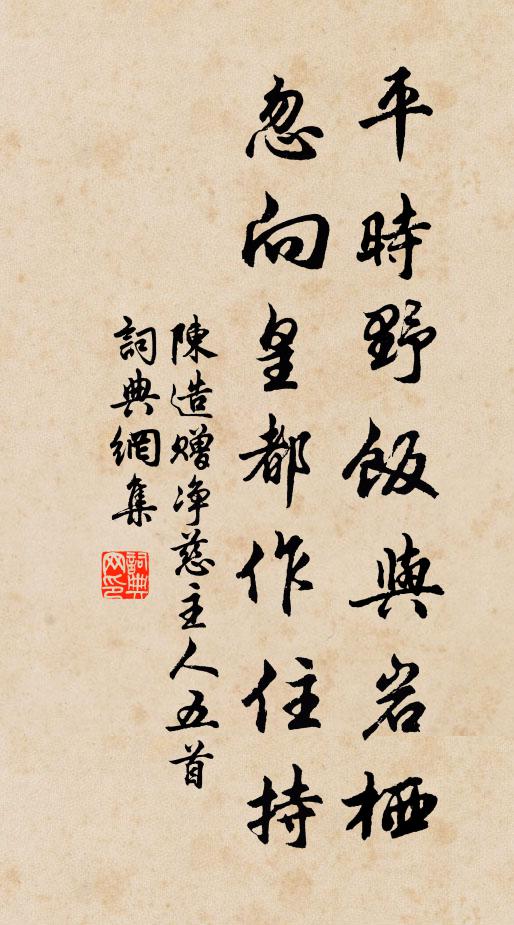 平時野飯與岩栖
忽向皇都作住持
陳造贈净慈主人五首
詞典網集
詞典网印